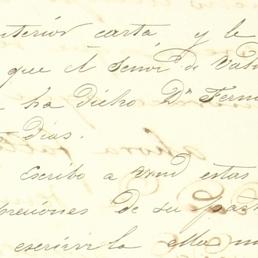 nterior carta y le
que el Señor de Val
ha dicho Dn Fern
Dias.
Escribo a Vmd estas
presiones de su part
escrivir la